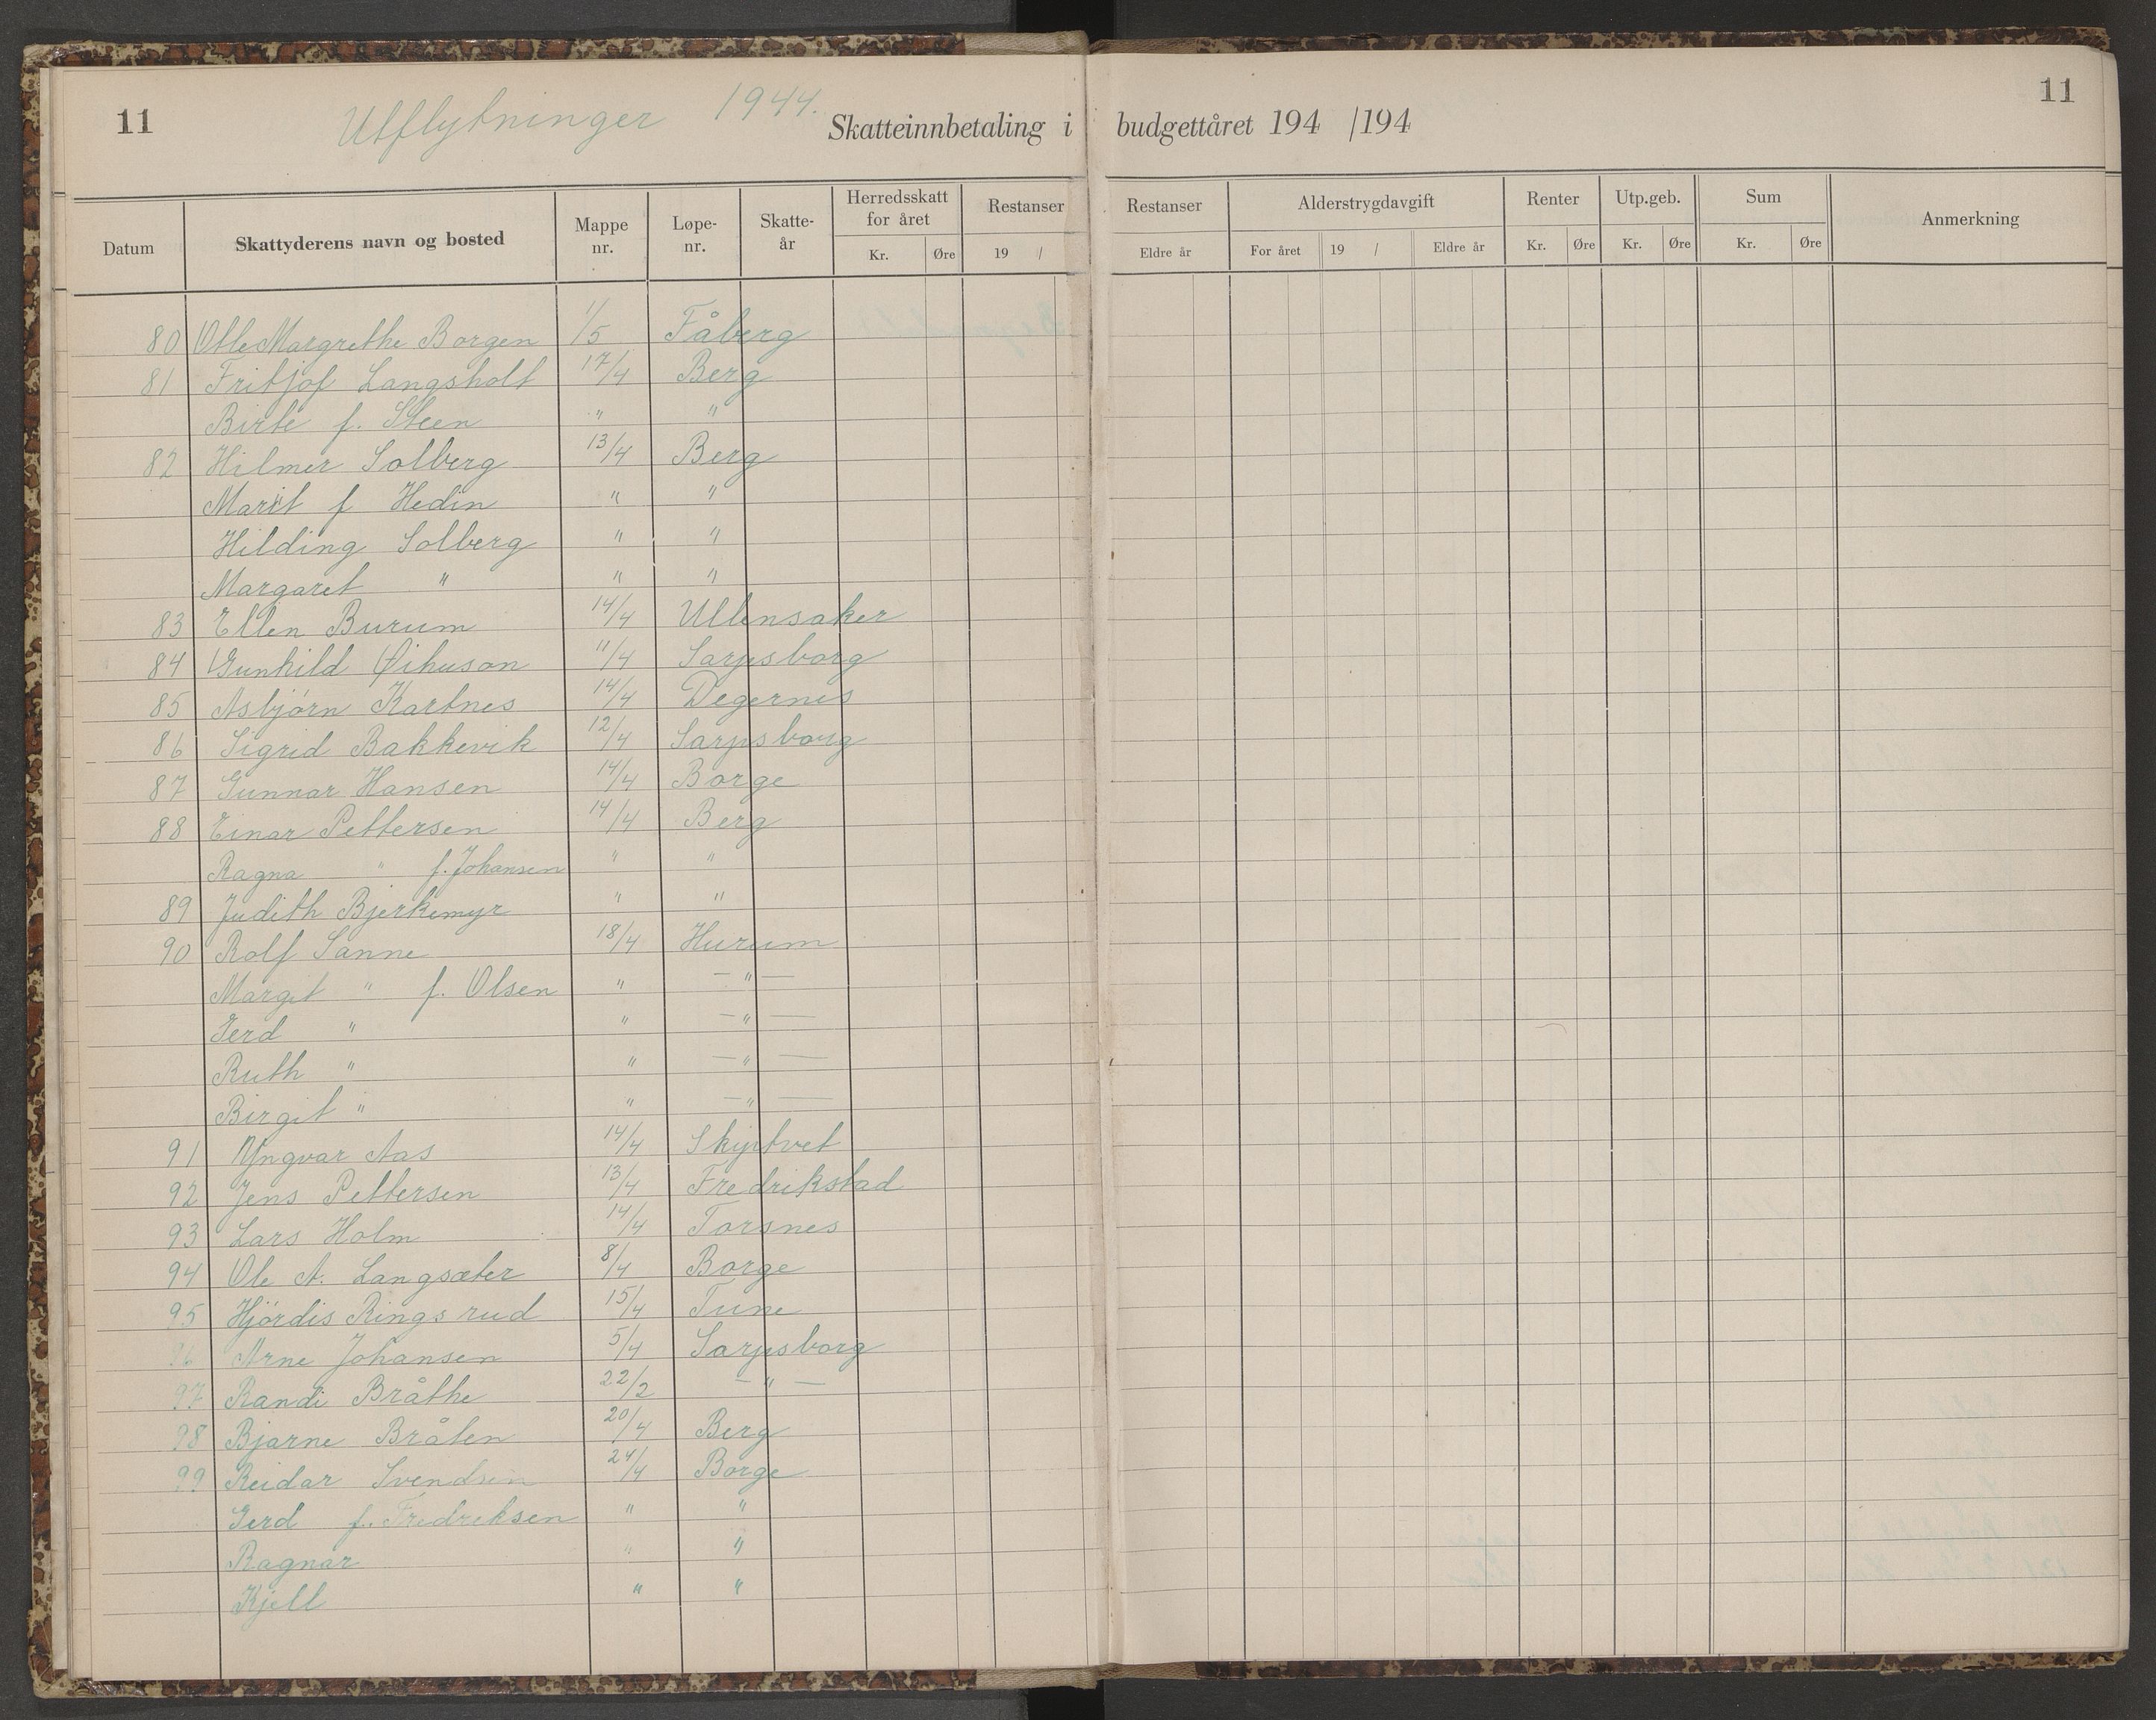 11 Utflytninger 1944. Skatteinnbetaling i budgettåret 194 /194 11
Datum Skattyderens navn og bosted Mappe nr. Løpe-nr. Skatte-år Herredsskatt for året Kr. Øre Restanser 19 / Restanser Eldre år Alderstrygdavgift For året 19 / Eldre år Renter Kr. Øre Utp.geb. Kr. Øre Sum Kr. Øre Anmerkning
80 Otle Margrethe Borgen 1/5 Fåberg
81 Fritjof Langsholt 17/4 Berg
Birte f. Steen " "
82 Hilmer Solberg 13/4 Berg
Marit f Hedin " "
Hilding Solberg " "
Margaret " " "
83 Ellen Burum 14/4 Ullensaker
84 Gunhild Øihuson 11/4 Sarpsborg
85 Asbjørn Kartnes 14/4 Degernes
86 Sigrid Bakkevik 12/4 Sarpsborg
87 Gunnar Hansen 14/4 Borge
88 Einar Pettersen 14/4 Berg
Ragna " f. Johansen " "
89 Judith Bjerkemyr " "
90 Rolf Sanne 18/4 Hurum
Margit " f. Olsen " — " —
Gerd " " — " —
Ruth " " — " —
Birgit " " — " —
91 Yngvar Aas 14/4 Skiptvet
92 Jens Pettersen 13/4 Fredrikstad
93 Lars Holm 14/4 Torsnes
94 Ole A. Langsæter 8/4 Borge
95 Hjørdis Ringsrud 15/4 Tune
96 Arne Johansen 5/4 Sarpsborg
97 Randi Bråthe 22/2 — " —
98 Bjarne Bråten 20/4 Berg
99 Reidar Svendsen 24/4 Borge
Gerd f. Fredreksen " "
Ragnar " "
Kjell " "